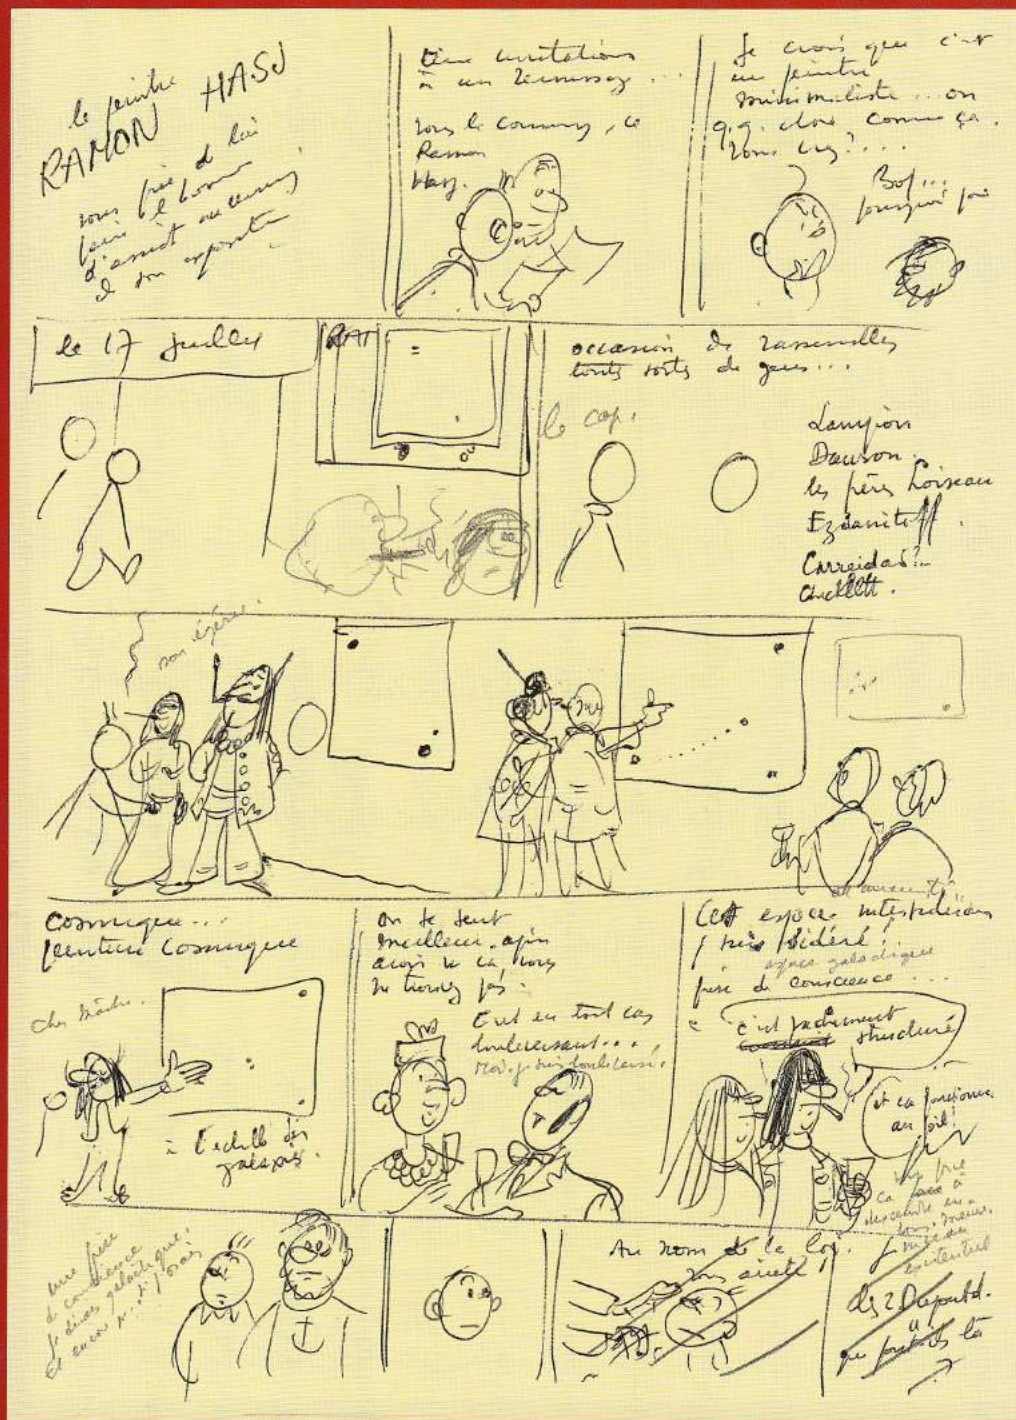 le peintre
RAMON HASJ
vous prie de lui
faire l'honneur
d'assister au vernissage
de son exposition
Une invitation
à un vernissage ...
vous le connaissez, ce
Ramon
Hasj.
Je crois que c'est
un peintre
minimaliste ... ou
q.q. chose comme ça.
Vous venez? ...
Bof...
pourquoi pas
le 17 juillet
RAM
occasion de rassembler
toutes sortes de gens ...
le cap.
Lampion
Dawson.
les frères Loiseau
Ezdanitoff.
Carreidas?..
Chicklett.
son égérie.
Cosmique...
peinture cosmique
Cher Maître.
à l'échelle des
galaxies.
On se sent
meilleur, après
avoir vu ça, vous
ne trouvez pas.
C'est en tout cas
bouleversant...
Moi, je suis bouleversé.
Cet espace
sidéré!
espace galactique
prise de conscience ...
c'est vachement
structuré
et ça fonctionne
au poil!
ça
descendre en
une prise
de conscience
je dirais galactique
et encore si j'osais
Au nom de la loi.
vous arrête
des 2 Dupond.
que font-ils là
?